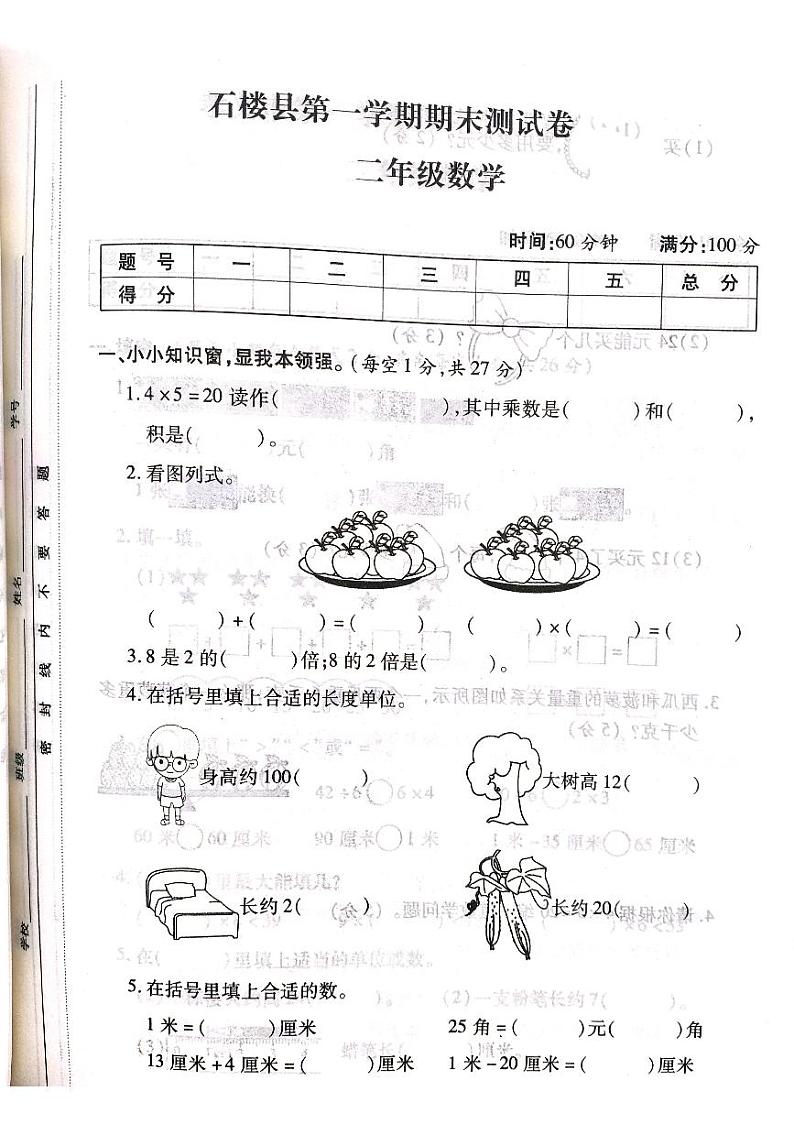 石楼县第一学期期末测试卷
二年级数学
时间:60分钟 满分:100分
题 号 一 二 三 四 五 总 分
得 分
一、小小知识窗,显我本领强。(每空1分,共27分)
1.4×5=20读作( ),其中乘数是( )和( ),
积是( )。
2.看图列式。
( )+( )=( ) ( )×( )=( )
3.8是2的( )倍;8的2倍是( )。
4.在括号里填上合适的长度单位。
身高约100( ) 大树高12( )
长约2( ) 长约20( )
5.在括号里填上合适的数。
1米=( )厘米 25角=( )元( )角
13厘米+4厘米=( )厘米 1米-20厘米=( )厘米
学校 班级 姓名 学号
密 封 线 内 不 要 答 题